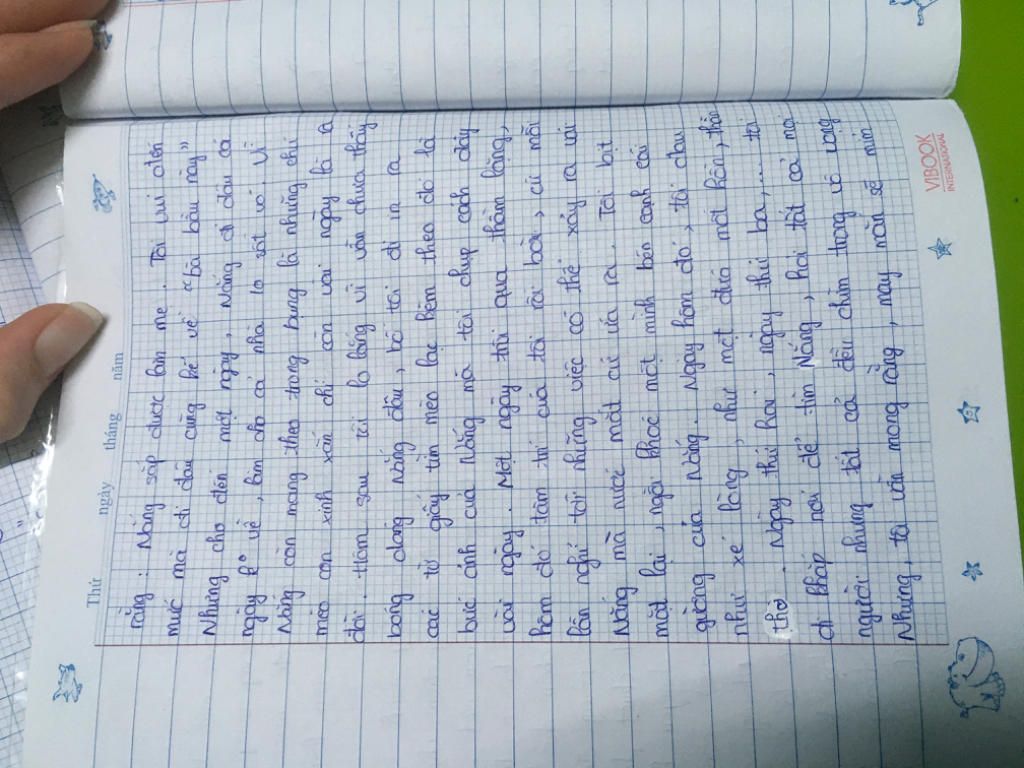 Thứ ngày tháng năm
rằng: Nắng sắp được làm mẹ. Tôi vui đến
mức mà đi đâu cũng kể về "bà bầu này"
Nhưng cho đến một ngày, Nắng đi đâu cả
ngày k° về, làm cho cả nhà lo sốt vó. Vì
Nắng còn mang theo trong bụng là những chú
mèo con xinh xắn chỉ còn vài ngày là ra
đời. Hôm sau tôi lo lắng vì vẫn chưa thấy
bóng dáng Nắng đâu, bố tôi đi in ra
các tờ giấy tìm mèo lạc kèm theo đó là
bức ảnh của Nắng mà tôi chụp cách đây
vài ngày. Một ngày trôi qua thầm lặng,
hôm đó tâm trí của tôi rối bời, cứ mỗi
lần nghĩ tới những việc có thể xảy ra với
Nắng mà nước mắt cứ ứa ra. Tôi bịt
mặt lại, ngồi khóc một mình bên cạnh cái
giường của Nắng. Ngày hôm đó, tôi đau
như xé lòng, như một đứa mất hồn, thẫn
thờ. Ngày thứ hai, ngày thứ ba,... tôi
đi khắp nơi để tìm Nắng, hỏi tất cả mọi
người nhưng tất cả đều chìm trong vô vọng
Nhưng, tôi vẫn mong rằng, may mắn sẽ mỉm
VIBOOK
INTERNATIONAL